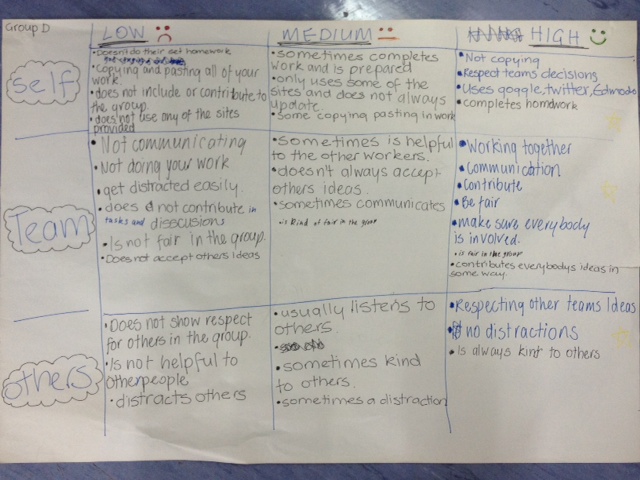 Group D
LOW
MEDIUM
HIGH
self
• Doesn't do their set homework
• Copying and pasting all of your
work.
• does not include or contribute to
the group.
• does not use any of the sites
provided
• sometimes completes
work and is prepared
• only uses some of the
sites and does not always
update.
• Some copying pasting in work
• Not copying
• Respect teams decisions
• Uses goggle, twitter, Edmodo
• completes homework
Team
• Not communicating
• Not doing your work
• get distracted easily.
• does not contribute in
tasks and disscusions
• Is not fair in the group.
• Does not accept others Ideas
• Sometimes is helpful
to the other workers.
• doesn't always accept
others ideas.
• sometimes communicates
• is kind of fair in the group
• Working together
• Communication
• Contribute
• Be fair
• make sure everybody
is involved.
• is fair in the group
• contributes everybodys ideas in
some way.
others
• Does not show respect
for others in the group.
• Is not helpful to
otherpeople
• distracts others
• usually listens to
others.
• sometimes kind
to others.
• sometimes a distraction
• Respecting other teams Ideas
• no distractions
• Is always kint to others